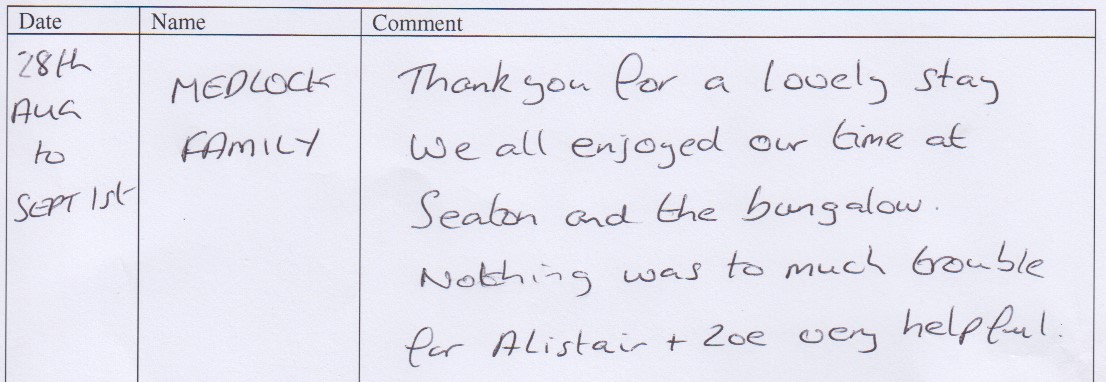 Date Name Comment
28th
AUG
to
SEPT 1st
MEDLOCK
FAMILY
Thank you for a lovely stay
We all enjoyed our time at
Seaton and the bungalow.
Nothing was to much trouble
for Alistair + Zoe very helpful.